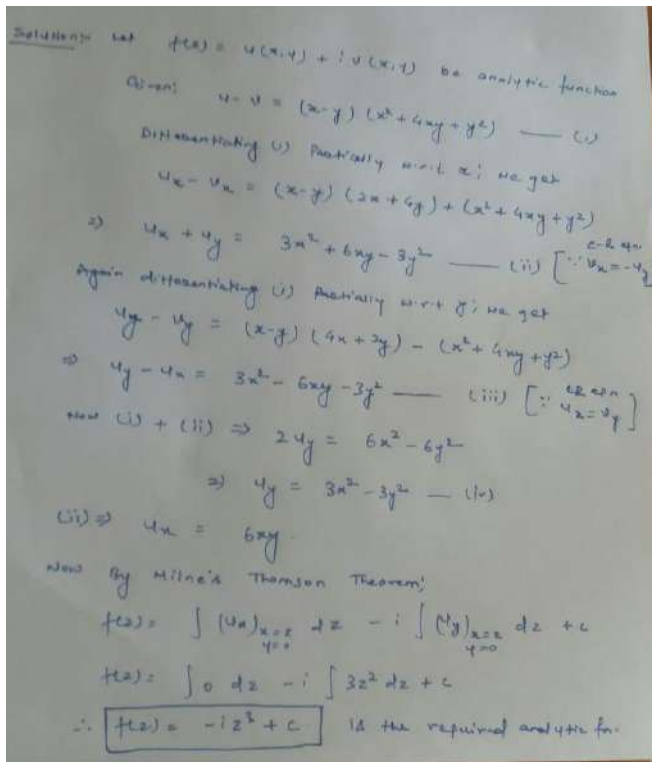 Solution:- Let f(z) = u(x,y) + i v(x,y) be analytic function
Given: u-v = (x-y) (x² + 4xy + y²) —— (i)
Differentiating (i) Partially w.r.t x; we get
u_x - v_x = (x-y) (2x + 4y) + (x² + 4xy + y²)
⇒ u_x + u_y = 3x² + 6xy - 3y² —— (ii) [∵ C-R eqn. v_x = -u_y]
Again differentiating (i) Partially w.r.t y; we get
u_y - v_y = (x-y) (4x + 2y) - (x² + 4xy + y²)
⇒ u_y - u_x = 3x² - 6xy - 3y² —— (iii) [∵ CR eqn u_x = v_y]
Now (i) + (ii) ⇒ 2u_y = 6x² - 6y²
⇒ u_y = 3x² - 3y² — (iv)
(ii) ⇒ u_x = 6xy.
Now By Milne's Thomson Theorem;
f(z) = ∫ (u_x)_{x=z y=0} dz - i ∫ (u_y)_{x=z y=0} dz + c
f(z) = ∫ 0 dz - i ∫ 3z² dz + c
∴ f(z) = -i z³ + c is the required analytic fn.